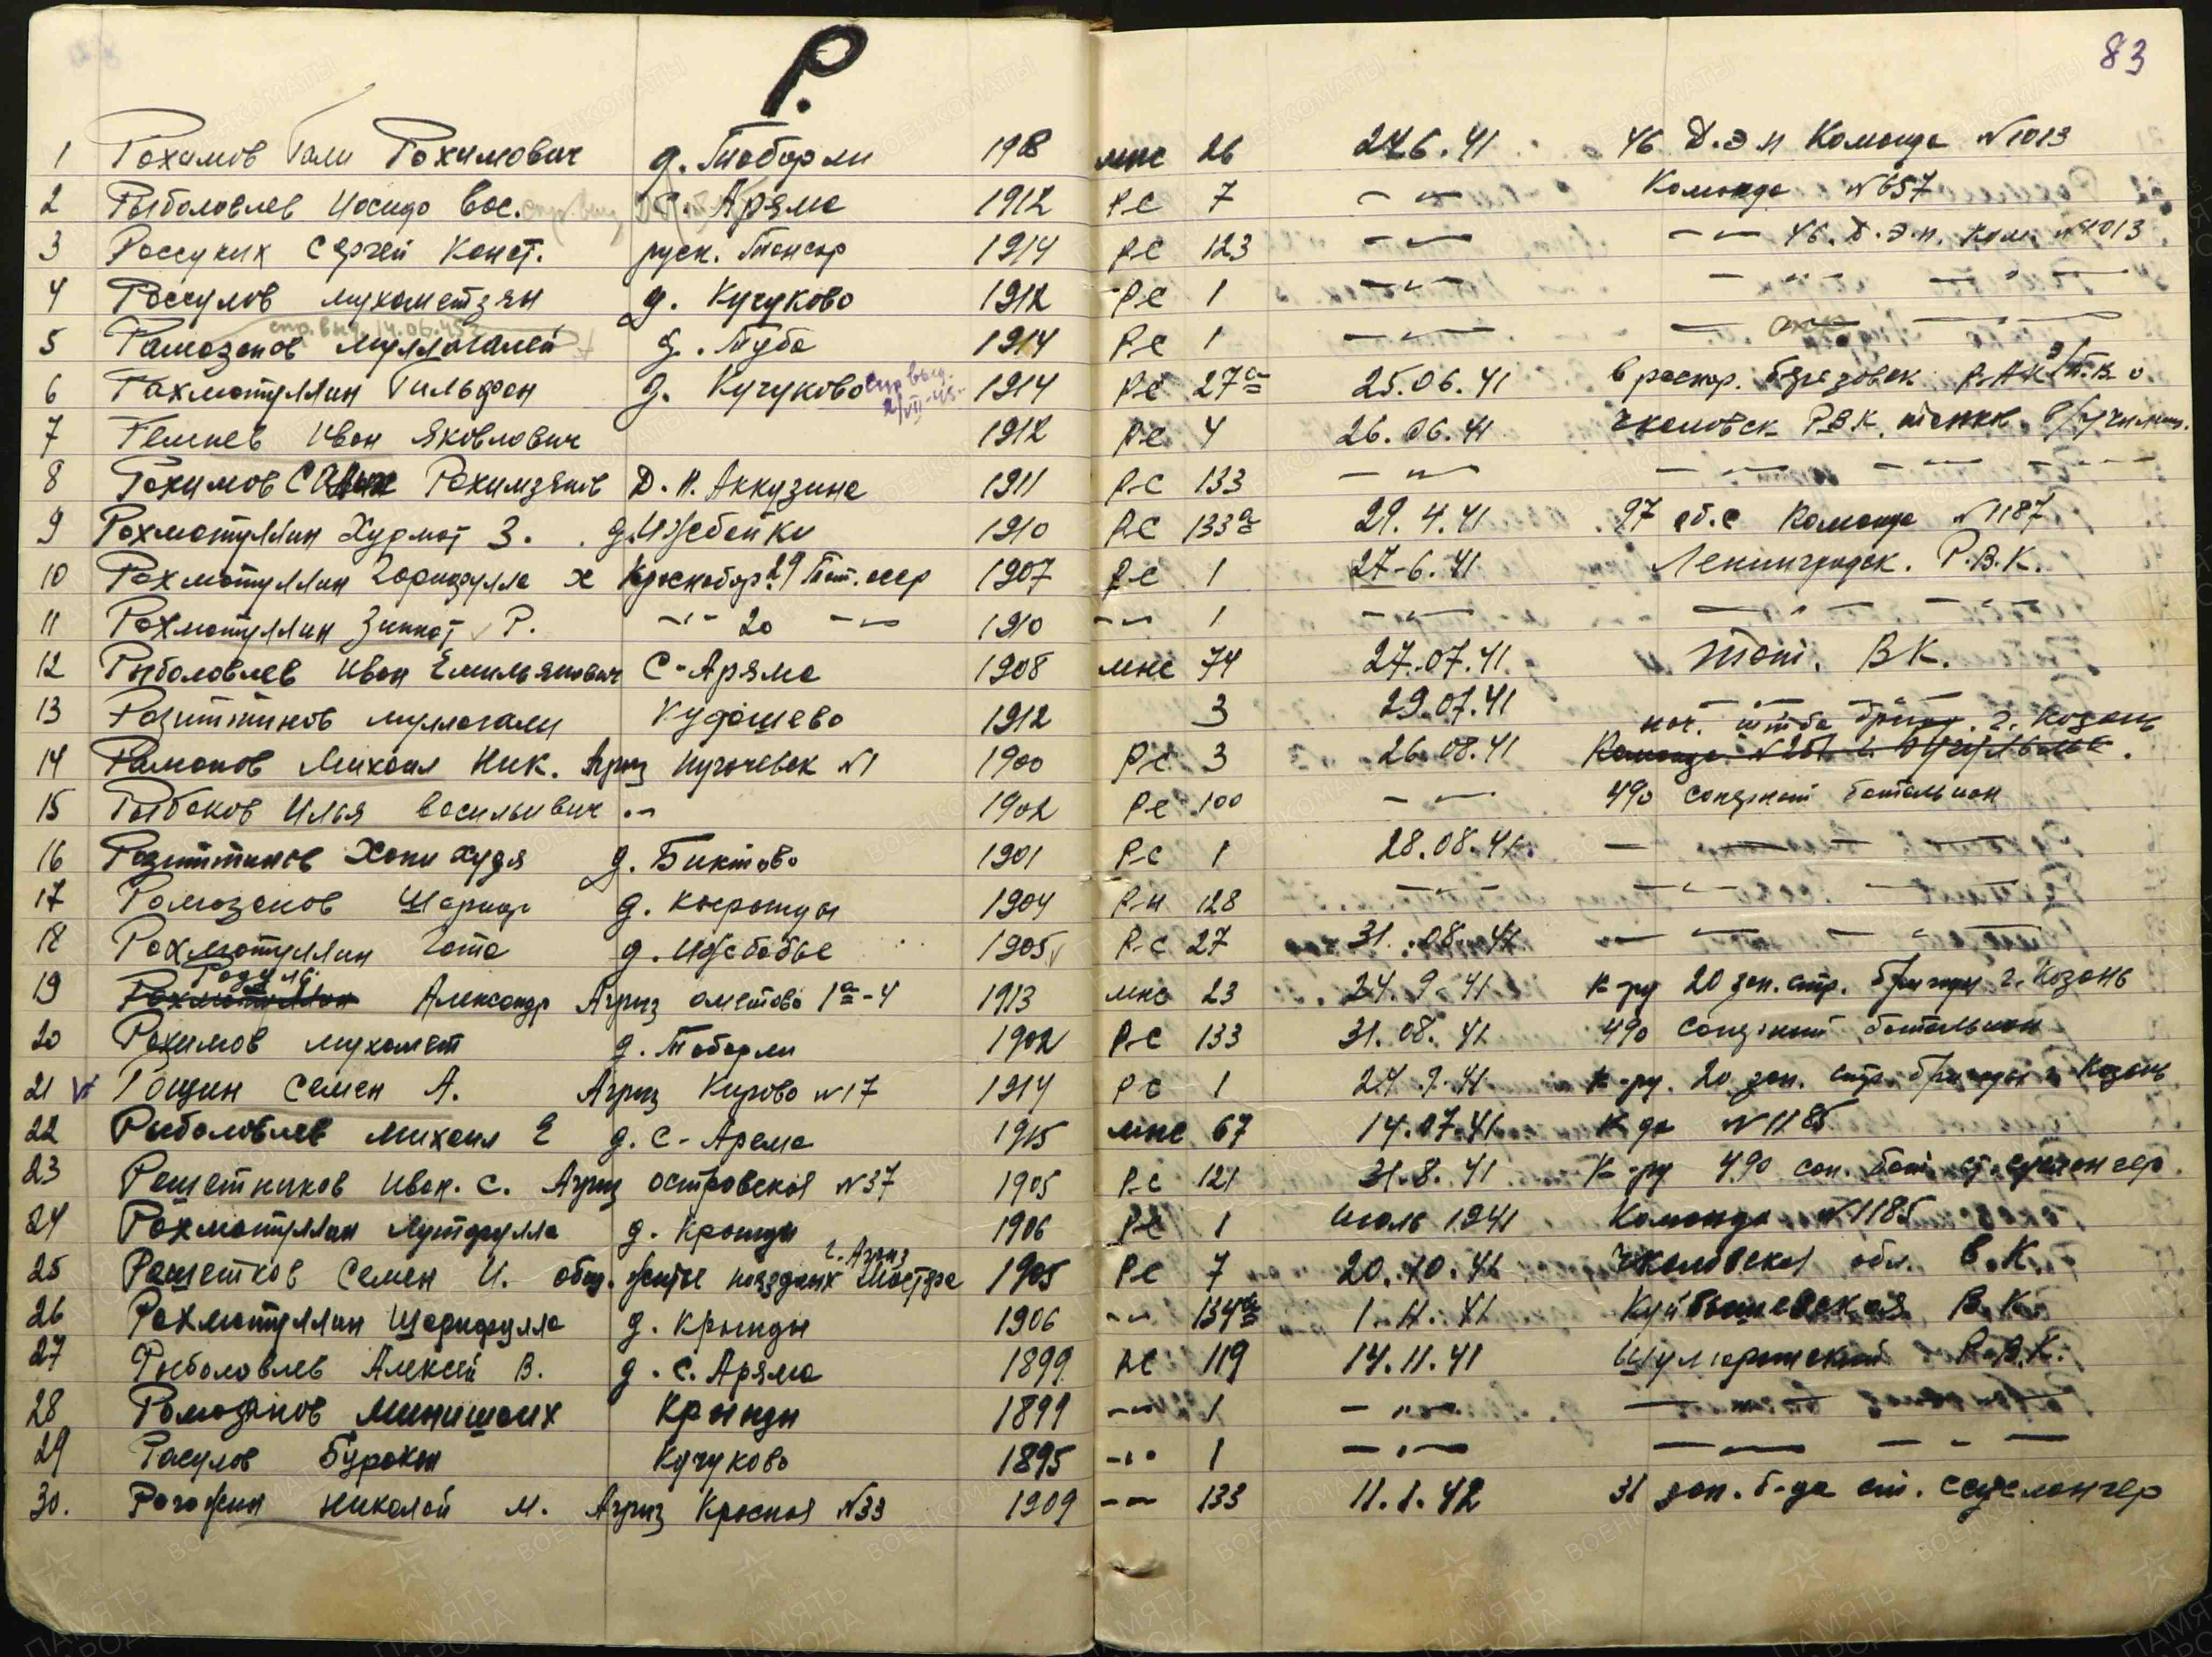 Р.
83
1 Рахимов Гали Рахимович д. Табарли 1918 мнс 26 24.6.41 46 Д.Э.П Команда №1013
2 Рыболовлев Вас. с. Аряма 1912 РС 7 – " – Команда №657
3 Рассуких Сергей Конст. русск. Тансар 1914 РС 123 – " – – " – 46. Д.Э.П. Ком. №1013
4 Рассулов Мухаметзян д. Кучуково 1912 РС 1 – " – – " – – " –
спр. выд. 14.06.45г
5 Рамазанов Муллагалей д. Туба 1914 РС 1 – " – – –
6 Рахматуллин Гильфан д. Кучуково спр выд. 1914 РС 27а 25.06.41 в распор.
7 Иван Яковлович 1912 РС 4 26.06.41 Чкаловск РВК.
8 Рахимов Рахимзянов Д. Н. Аккузина 1911 РС 133 – " – – " – – " –
9 Рахматуллин Хурмат З. д. Ижбайки 1910 РС 133а 29.4.41 Команда №1187
10 Рахматуллин Гарифулла Х Краснобор. 29 Тат. ССР 1907 РС 1 27-6.41 Ленинградск. Р.В.К.
11 Рахматуллин Зиннат Р. – " – 20 – " – 1910 – " – 1 – " – – " – – " –
12 Рыболовлев Иван Емильянович С-Аряма 1908 мнс 74 27.07.41 Тат. ВК.
13 Разиттинов Муллагали Кудашево 1912 3 29.07.41 – " –
нач. штаба бригад. г. Казань
14 Рамонов Михаил Ник. Агрыз Пугачевск №1 1900 РС 3 26.08.41 Команда
15 Рыбаков Илья Васильивич – " – 1902 РС 100 – " – 490 саперный батальион
16 Разиттинов Ханихудя д. Биктово 1901 РС 1 28.08.41. – " –
17 Рамазанов Шарифд. Кырынды 1904 РН 128 – " – – " –
18 Рахматуллин Гата д. Ижбобье 1905 РС 27 31.08.41 – " –
19 Александр Агрыз Аметово 1а-4 1913 мнс 23 24.9.41 К-ру 20 зап. стр. бригады г. Казань
20 Рахимов Мухамет д. Табарли 1902 РС 133 31.08.41 490 саперный батальион
21 Рощин Семен А. Агрыз Кирова №17 1914 РС 1 24.9.41 К-ру. 20 зап. стр. бригады г. Казань
22 Рыболовлев Михаил Е д. С-Аряма 1915 мнс 67 14.07.41 К-да №1185
23 Решетников Иван. С. Агрыз Островская №37 1905 РС 121 31.8.41 К-ру 490 сап. бат. ст. Суслонгер.
24 Рахматуллин Лутфулла д. Крынды 1906 РС 1 Июль 1941 Команда №1185
г. Агрыз
25 Решетков Семен И. общ. житье 1905 РС 7 20.10.41 Чкаловская обл. В.К.
26 Рахматуллин Шарифулла д. Крынды 1906 – " – 134а 1.11.41 Куйбышевская В.К.
27 Рыболовлев Алексей В. д. С. Аряма 1899 РС 119 14.11.41 Шумерлинский Р.В.К.
28 Рамазанов Минишаих Крынды 1899 – " – 1 – " – – " –
29 Расулов Бурахан Кучуково 1895 – " – 1 – " – – " – – " –
30. Рагожин Николай М. Агрыз Красная №33 1909 – " – 133 11.1.42 31 зап. б-да ст. Сеуслонгер